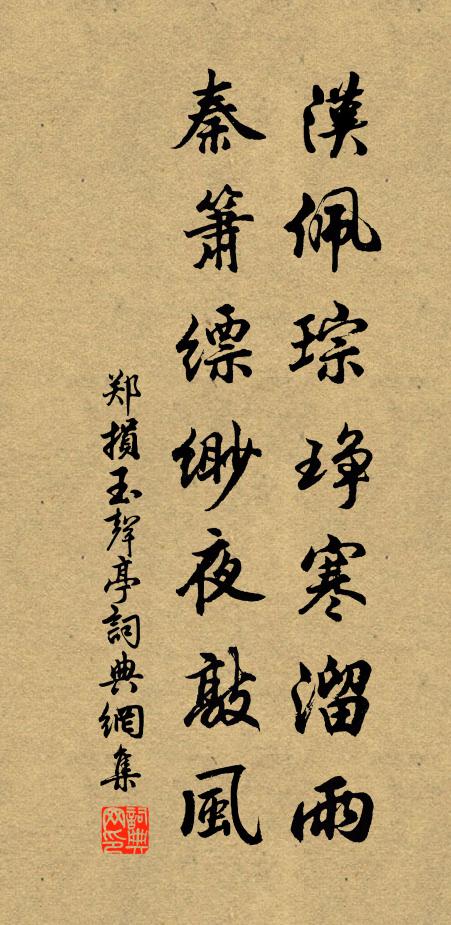 漢佩琮琤寒溜雨
秦簫縹緲夜敲風
郑損玉聲亭詞典網集
詞典網印